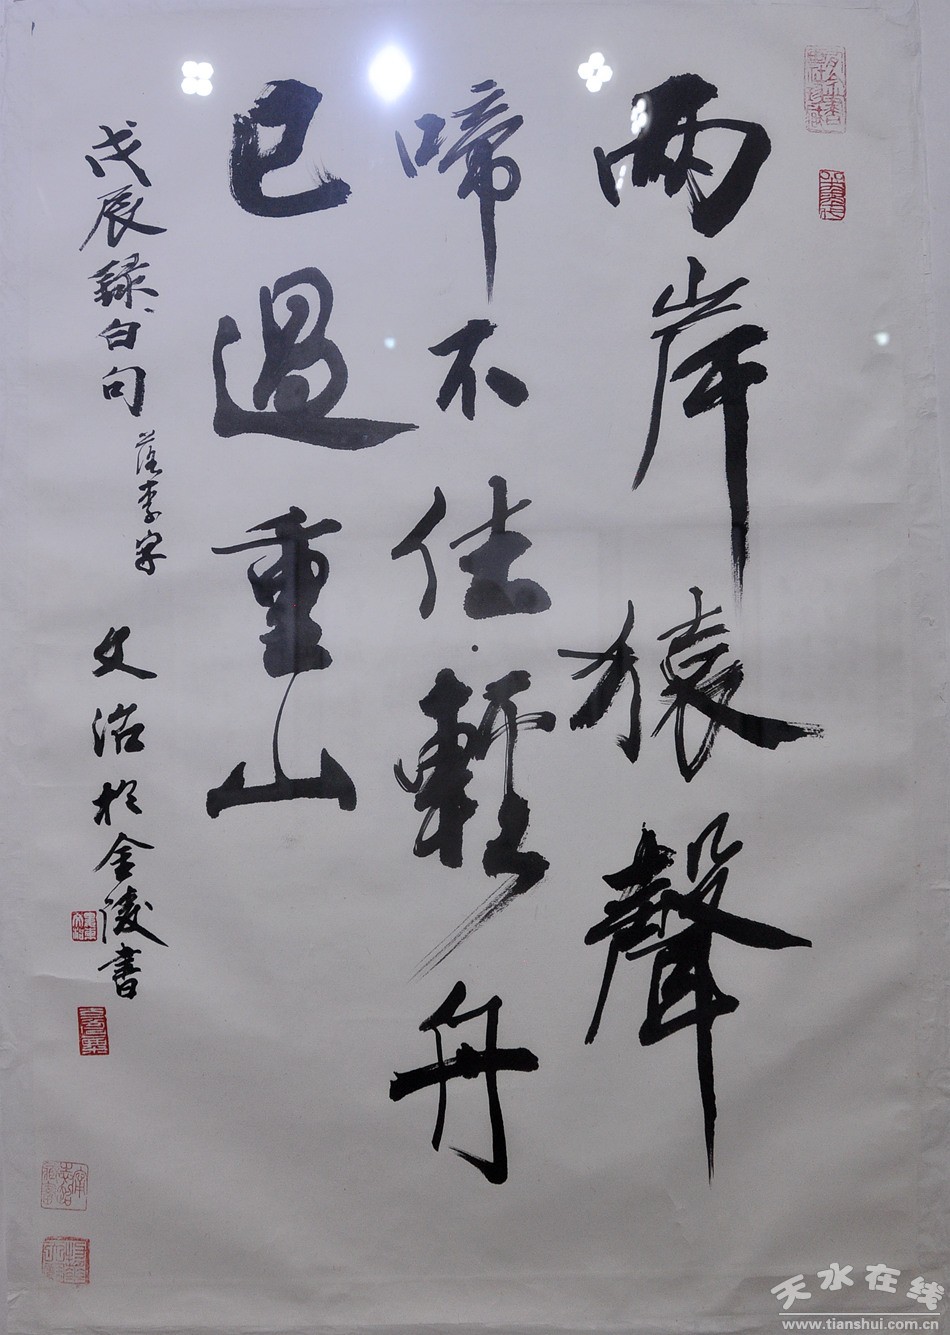 兩岸猿聲
啼不住輕舟
已過重山
戊辰錄白句 落李字 文治於金陵書
天水在线
www.tianshui.com.cn